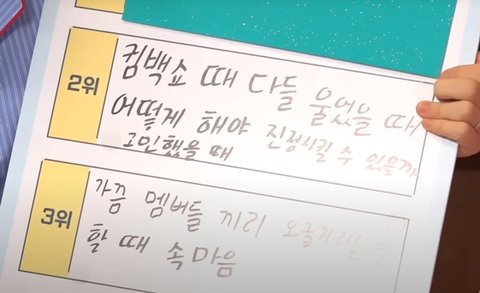 2위
컴백쇼 때 다들 울었을 때
어떻게 해야 진정시킬 수 있을까
고민했을 때
3위
가끔 멤버들 끼리 오글거리는 말
할 때 속마음